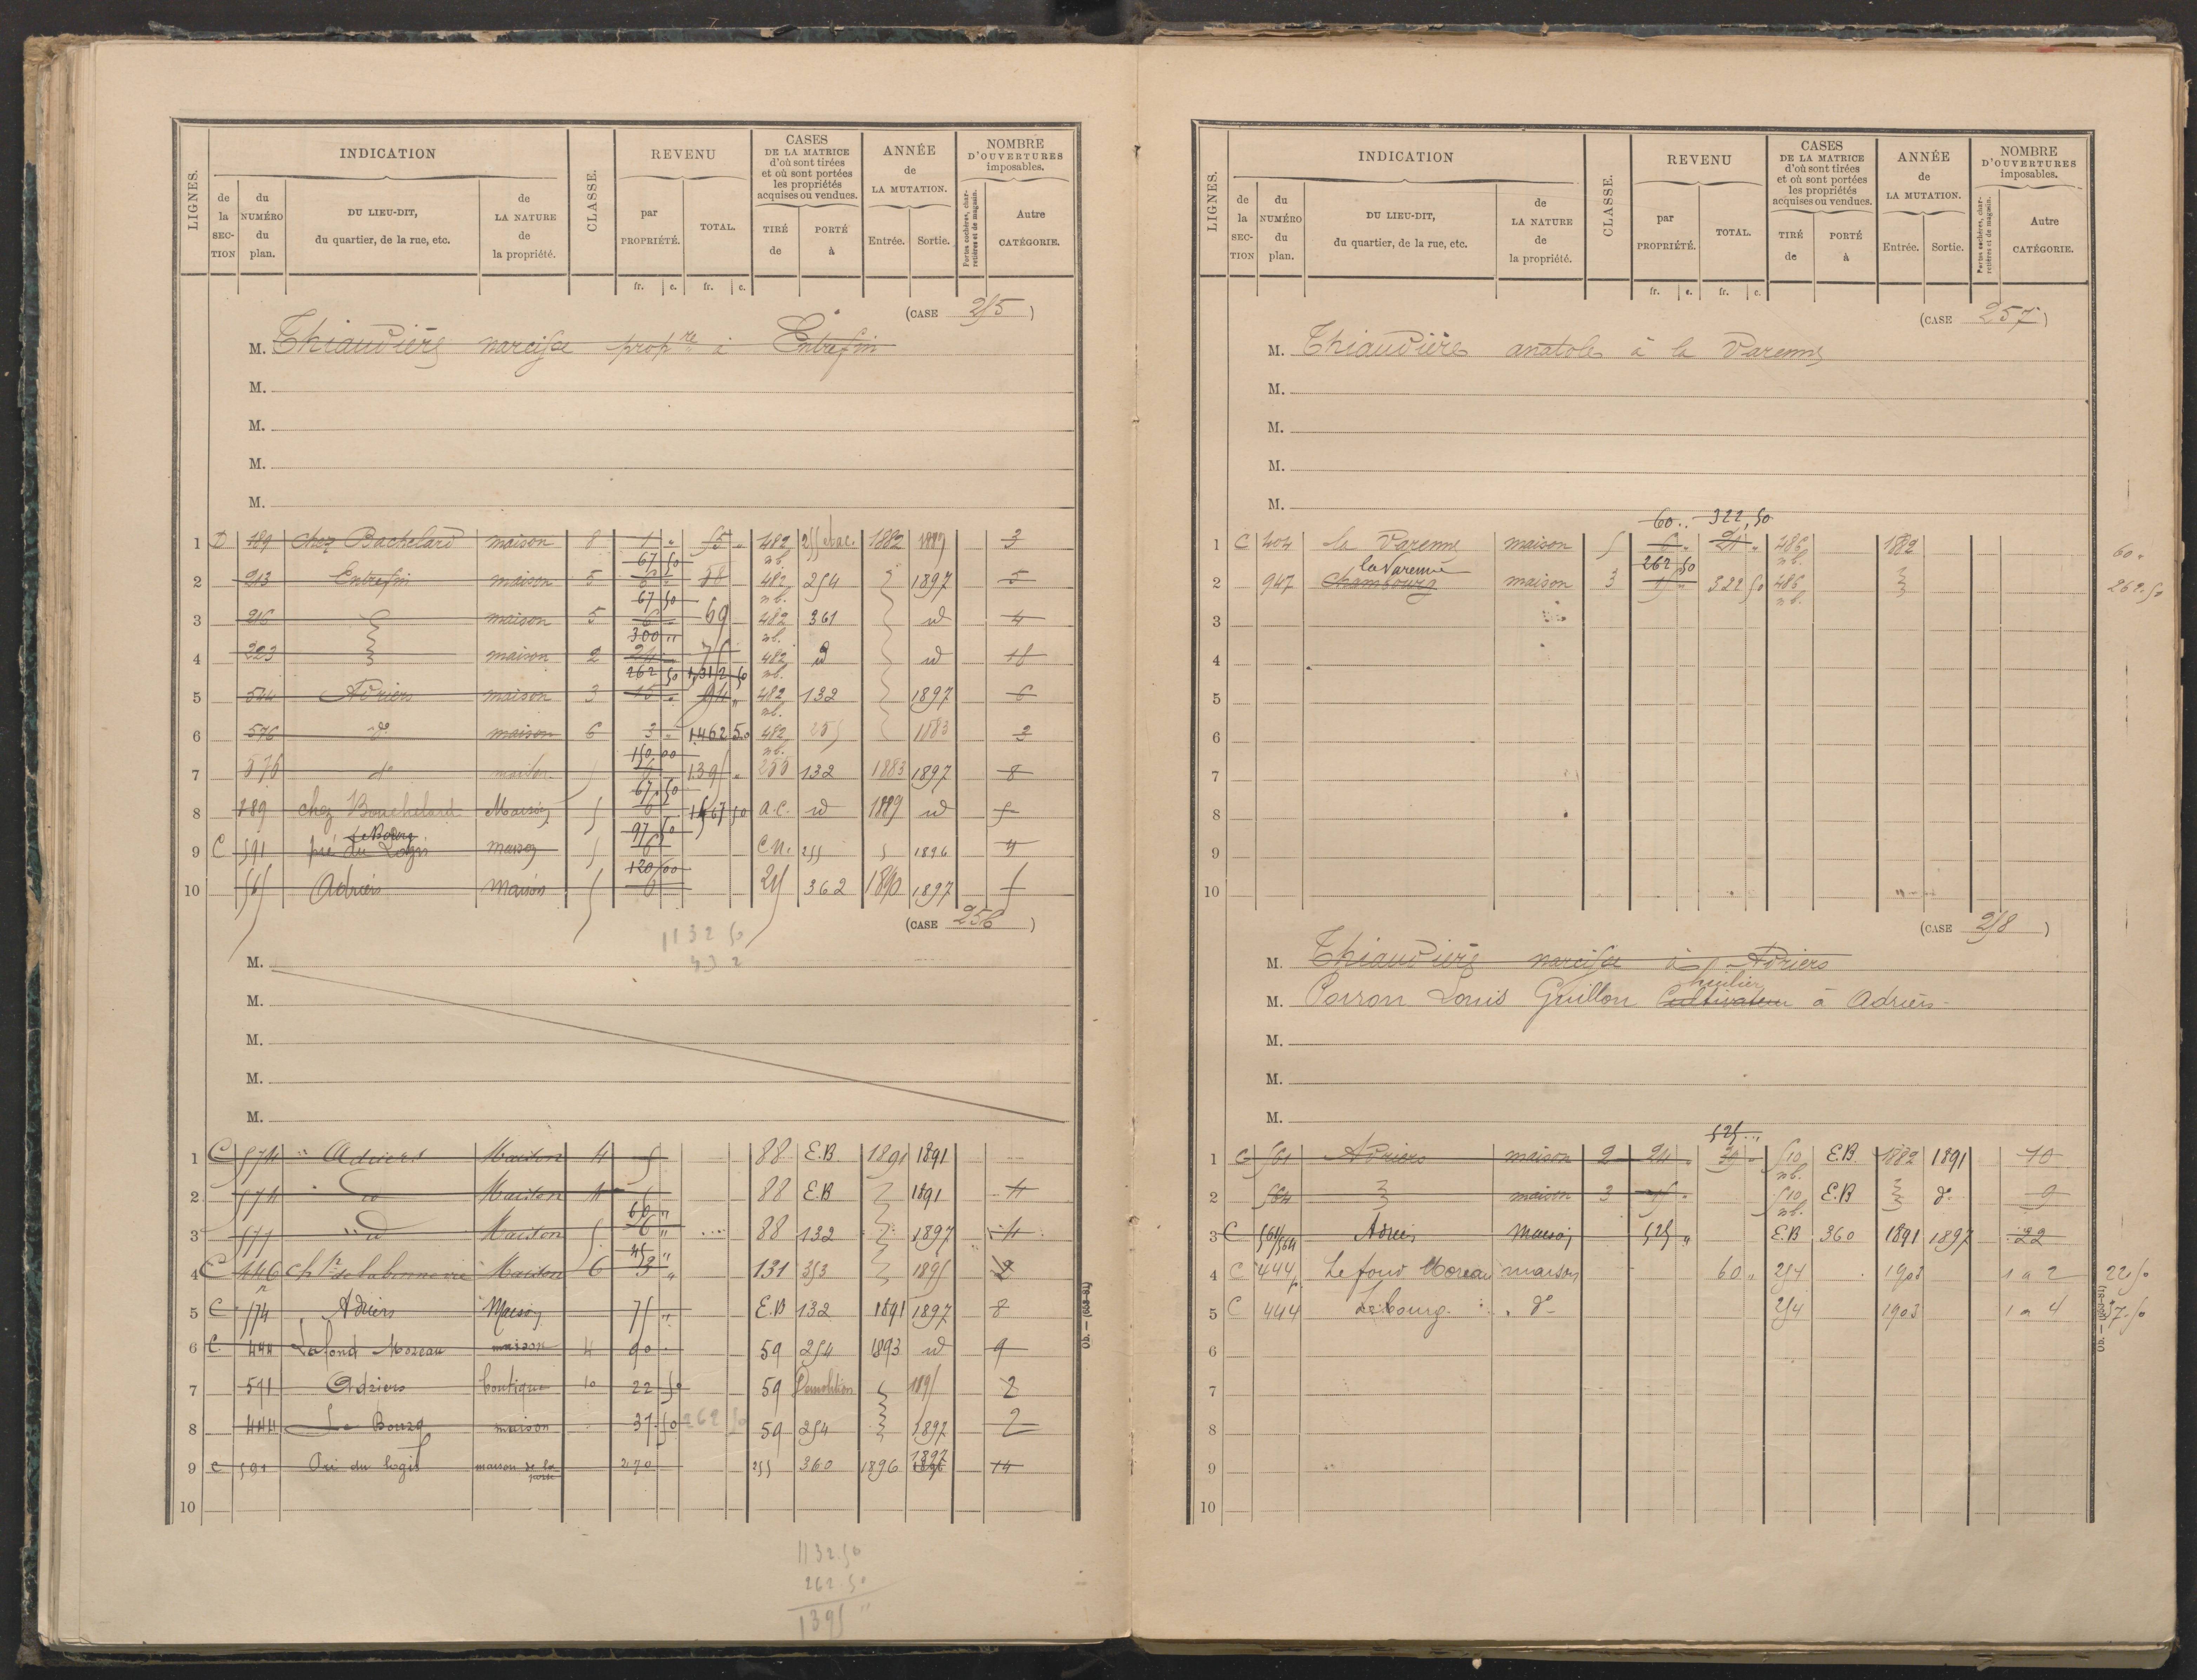 LIGNES. INDICATION CLASSE. REVENU CASES DE LA MATRICE d'où sont tirées et où sont portées les propriétés acquises ou vendues. ANNÉE de LA MUTATION. NOMBRE D'OUVERTURES imposables.
de la SECTION du NUMÉRO du plan. DU LIEU-DIT, du quartier, de la rue, etc. de LA NATURE de la propriété. par PROPRIÉTÉ. TOTAL. TIRÉ de PORTÉ à Entrée. Sortie. Portes cochères, charretières et de magasin. Autre CATÉGORIE.
fr. c. fr. c.
(CASE 255)
M. Thiaudière narcisse prop re à Entrefin
M.
M.
M.
M.
1 D 189 chez Bachelard maison 8 1 " 55 " 482 nb. 255 1882 1889 3
67 50
2 213 Entrefin maison 5 6 " 58 482 nb. 254 1897 5
67 50
3 216 maison 5 6 69 482 nb. 361 id 4
300 "
4 223 maison 2 24 75 482 nb. id id 18
262 50 1,312 50
5 544 Adriers maison 3 15 " 94 " 482 nb. 132 1897 6
6 576 d° maison 6 3 " 1462 50 482 nb. 255 1883 2
150 00
7 576 d° maison 1395 " 255 132 1883 1897 8
67.50
8 189 chez Bouchelard Maison 5 6 50 a.C. id 1889 id 5
97 50
Le Bourg
9 C 591 pré du Logis maison 5 6 C.N. 255 1896 4
120 00
10 565 Adriers Maison 5 6 255 362 1890 1897 5
1132 50
(CASE 256)
M.
M.
M.
M.
M.
1 C 574 " Adriers Maison 4 5 88 E.B. 1891 1891
2 574 id Maison 4 88 E.B 1891 4
60 "
3 571 " id Maison 5 6 " 88 132 1897 4
45 "
4 C 446 Maison 6 3 " 131 353 1895 2
5 C 574 Adriers Maison 75 " E.B 132 1891 1897 8
6 C 444 Lafond Moreau maison 4 90 59 254 1893 id 9
7 591 Adriers boutique 10 22 50 59 Démolition 1895 2
8 444 Le Bourg maison 37.50 262 50 59 254 1897 2
9 C 591 Pré du logis maison de la poste 270 255 360 1896 1897 14
10
1132.50
262 50
1395 "
LIGNES. INDICATION CLASSE. REVENU CASES DE LA MATRICE d'où sont tirées et où sont portées les propriétés acquises ou vendues. ANNÉE de LA MUTATION. NOMBRE D'OUVERTURES imposables.
de la SECTION du NUMÉRO du plan. DU LIEU-DIT, du quartier, de la rue, etc. de LA NATURE de la propriété. par PROPRIÉTÉ. TOTAL. TIRÉ de PORTÉ à Entrée. Sortie. Portes cochères, charretières et de magasin. Autre CATÉGORIE.
fr. c. fr. c.
(CASE 257)
M. Thiaudière anatole à la Varenne
M.
M.
M.
M.
60 .. 322,50
1 C 404 la Varenne maison 5 6 " 21 " 486 nb. 1882 60 "
la Varenne 262 50
2 947 Chambourg maison 3 15 " 322 50 486 nb. 262.50
3
4
5
6
7
8
9
10
(CASE 258)
M. Thiaudière narcisse à Adriers
huilier
M. Poiron Louis Guillon Cultivateur à Adriers
M.
M.
M.
525 ..
1 C 561 Adriers maison 2 24 " 39 " 510 nb. E.B. 1882 1891 10
2 564 maison 3 15 " 510 nb. E.B d° 9
3 C 561/564 Adriers Maison 525 " E.B 360 1891 1897 22
4 C 444p Le fond Moreau maison 60 " 254 1903 1 a 2 22 50
5 C 444 Le bourg d° 254 1903 1 a 4 37.50
6
7
8
9
10